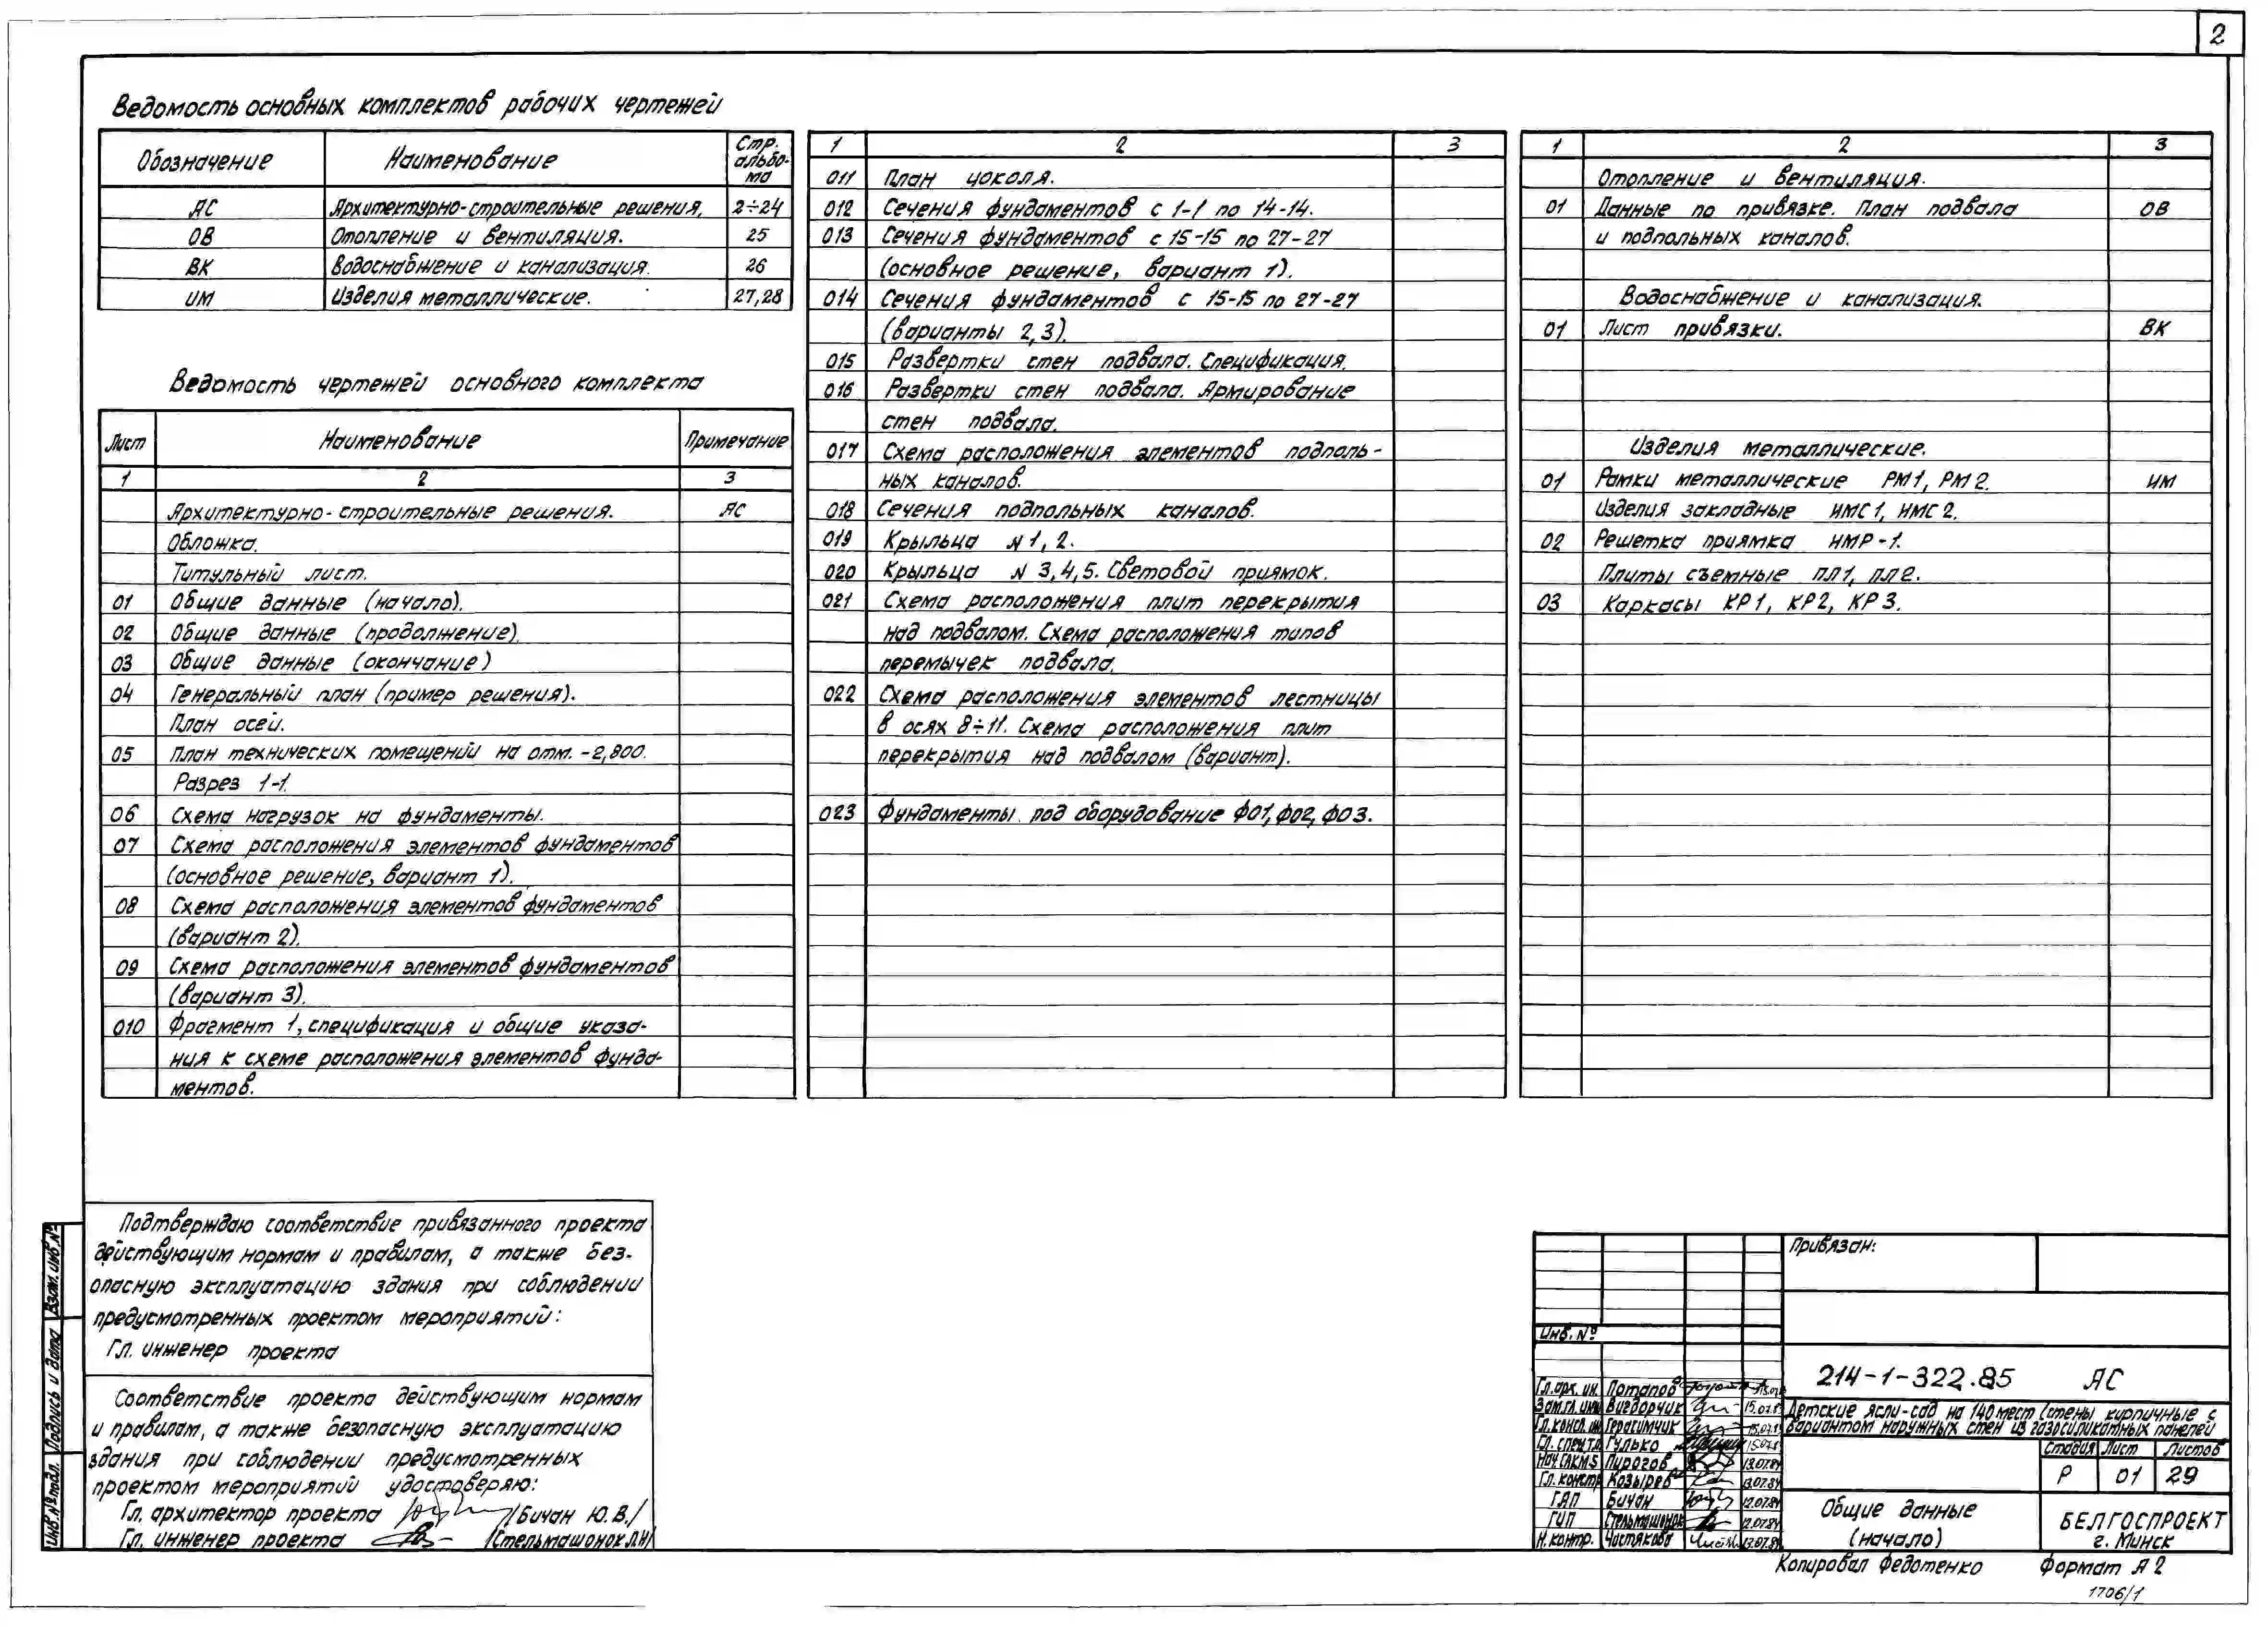 2
Ведомость основных комплектов рабочих чертежей
Обозначение Наименование Стр. альбо-
ма
АС Архитектурно-строительные решения. 2÷24
ОВ Отопление и вентиляция. 25
ВК Водоснабжение и канализация. 26
ИМ Изделия металлические. 27,28
Ведомость чертежей основного комплекта
Лист Наименование Примечание
1 2 3
Архитектурно-строительные решения. АС
Обложка.
Титульный лист.
01 Общие данные (начало).
02 Общие данные (продолжение).
03 Общие данные (окончание)
04 Генеральный план (пример решения).
План осей.
05 План технических помещений на отм. -2,800.
Разрез 1-1.
06 Схема нагрузок на фундаменты.
07 Схема расположения элементов фундаментов
(основное решение, вариант 1).
08 Схема расположения элементов фундаментов
(вариант 2).
09 Схема расположения элементов фундаментов
(вариант 3).
010 Фрагмент 1, спецификация и общие указа-
ния к схеме расположения элементов фунда-
ментов.
1 2 3
011 План цоколя.
012 Сечения фундаментов с 1-1 по 14-14.
013 Сечения фундаментов с 15-15 по 27-27
(основное решение, вариант 1).
014 Сечения фундаментов с 15-15 по 27-27
(варианты 2, 3).
015 Развертки стен подвала. Спецификация.
016 Развертки стен подвала. Армирование
стен подвала.
017 Схема расположения элементов подполь-
ных каналов.
018 Сечения подпольных каналов.
019 Крыльца N 1, 2.
020 Крыльца N 3,4,5. Световой приямок.
021 Схема расположения плит перекрытия
над подвалом. Схема расположения типов
перемычек подвала.
022 Схема расположения элементов лестницы
в осях 8÷11. Схема расположения плит
перекрытия над подвалом (вариант).
023 Фундаменты под оборудование ФО1, ФО2, ФО3.
1 2 3
Отопление и вентиляция.
01 Данные по привязке. План подвала ОВ
и подпольных каналов.
Водоснабжение и канализация.
01 Лист привязки. ВК
Изделия металлические.
01 Рамки металлические РМ1, РМ2. ИМ
Изделия закладные НМС1, НМС2.
02 Решетка приямка НМР-1.
Плиты съемные ПЛ1, ПЛ2.
03 Каркасы КР1, КР2, КР3.
Подтверждаю соответствие привязанного проекта
действующим нормам и правилам, а также без-
опасную эксплуатацию здания при соблюдении
предусмотренных проектом мероприятий:
Гл. инженер проекта
Соответствие проекта действующим нормам
и правилам, а также безопасную эксплуатацию
здания при соблюдении предусмотренных
проектом мероприятий удостоверяю:
Гл. архитектор проекта /Бичан Ю.В./
Гл. инженер проекта /Стельмашонок Л.Н/
Взам. инв.№
Подпись и дата
Инв.№ подл.
Привязан:
Инв. №
214-1-322.85 АС
Гл.арх. ин. Потапов
Зам.гл. инж Вигдорчик 15.07.8
Гл.конс. ин Герасимчик 15.07.8
Гл. спец Т.О. Гулько 15.07.8
Нач.САКМ5 Пирогов 13.07.84
Гл. констр Козырев 13.07.84
ГАП Бичан 12.07.84
ГИП Стельмашонок 12.07.84
Н. контр. Чистякова 13.07.84
Детские ясли-сад на 140 мест (стены кирпичные с
вариантом наружных стен из газосиликатных панелей
Стадия Лист Листов
Р 01 29
Общие данные
(начало)
БЕЛГОСПРОЕКТ
г. Минск
Копировал Федотенко Формат А2
1706/1